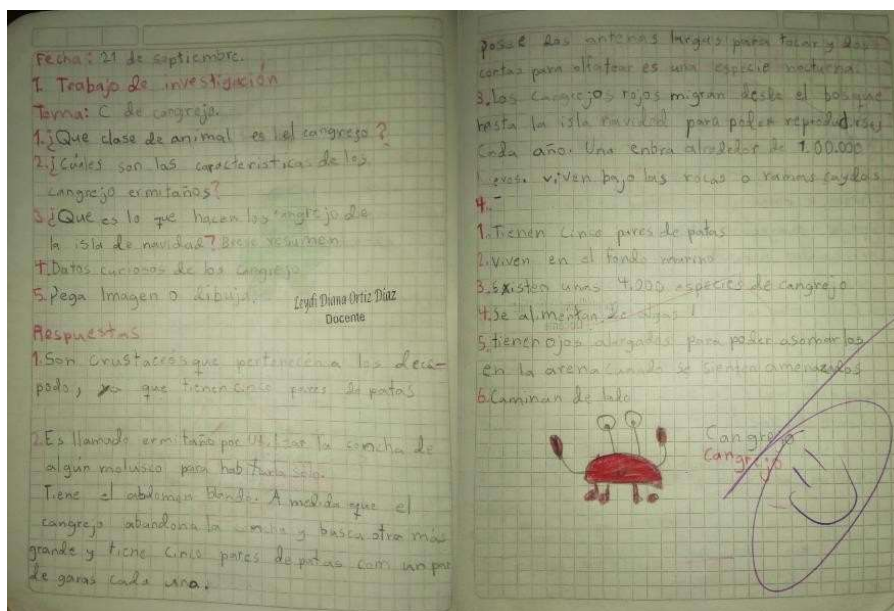 Fecha: 21 de septiembre.
I Trabajo de investigación
Tema: C de cangrejo.
1. ¿Que clase de animal es el cangrejo?
2. ¿Cuales son las caracteristicas de los
cangrejo ermitaños?
3 ¿Que es lo que hacen los cangrejo de
la isla de navidad? Breve resumen
4. Datos curiosos de los cangrejo
5. Pega Imagen o dibujo.
Leydi Diana Ortiz Díaz
Docente
Respuestas
1. Son crustaceos que pertenecen a los deca-
podo, ya que tienen cinco pares de patas
2. Es llamado ermitaño por utilizar la concha de
algún molusco para habitarla solo.
Tiene el abdomen blando. A medida que el
cangrejo abandona la concha y busca otra más
grande y tiene cinco pares de patas com un par
de garas cada una.
posee dos antenas largas para tocar y dos
cortas para olfatear es una especie nocturna.
3. los cangrejos rojos migran desde el bosque
hasta la isla navidad para poder reproducirsej
Cada año. Una enbra alrededor de 1.00.000
viven bajo las rocas o ramas caydas
4. -
1. Tienen cinco pares de patas
2. viven en el fondo marino
3. existen unas 4.000 especies de cangrejo
4. se alimentan de algas
5. tienen ojos alargados para poder asomarlos
en la arena cuando se sienten amenazados
6. Caminan de lado
Cangrejo
Cangrejo